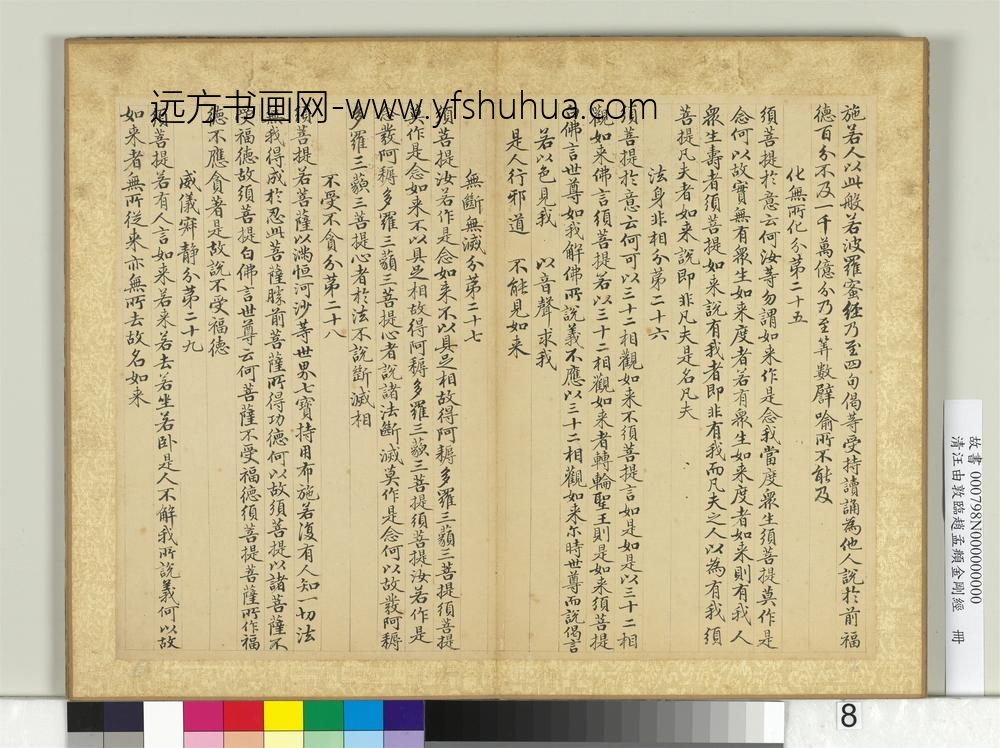 远方书画网-www.yfshuhua.com
施若人以此般若波羅蜜經乃至四句偈等受持讀誦為他人說於前福
德百分不及一千萬億分乃至筭數譬喻所不能及
化無所化分第二十五
須菩提於意云何汝等勿謂如来作是念我當度衆生須菩提莫作是
念何以故實無有衆生如来度者若有衆生如来度者如来則有我人
衆生壽者須菩提如来說有我者即非有我而凡夫之人以為有我須
菩提凡夫者如来說即非凡夫是名凡夫
法身非相分第二十六
須菩提於意云何可以三十二相觀如来不須菩提言如是如是以三十二相
觀如来佛言須菩提若以三十二相觀如来者轉輪聖王則是如来須菩提
白佛言世尊如我解佛所說義不應以三十二相觀如来尓時世尊而說偈言
若以色見我 以音聲求我
是人行邪道 不能見如来
無斷無滅分第二十七
須菩提汝若作是念如来不以具足相故得阿耨多羅三藐三菩提須菩提
莫作是念如来不以具足相故得阿耨多羅三藐三菩提須菩提汝若作是
念發阿耨多羅三藐三菩提心者說諸法斷滅莫作是念何以故發阿耨
多羅三藐三菩提心者於法不說斷滅相
不受不貪分第二十八
須菩提若菩薩以滿恒河沙等世界七寶持用布施若復有人知一切法
無我得成於忍此菩薩勝前菩薩所得功德何以故須菩提以諸菩薩不
受福德故須菩提白佛言世尊云何菩薩不受福德須菩提菩薩所作福
德不應貪著是故說不受福德
威儀寂静分第二十九
須菩提若有人言如来若来若去若坐若卧是人不解我所說義何以故
如来者無所從来亦無所去故名如来
故書 000798N000000000
清汪由敦臨趙孟頫金剛經 冊
8